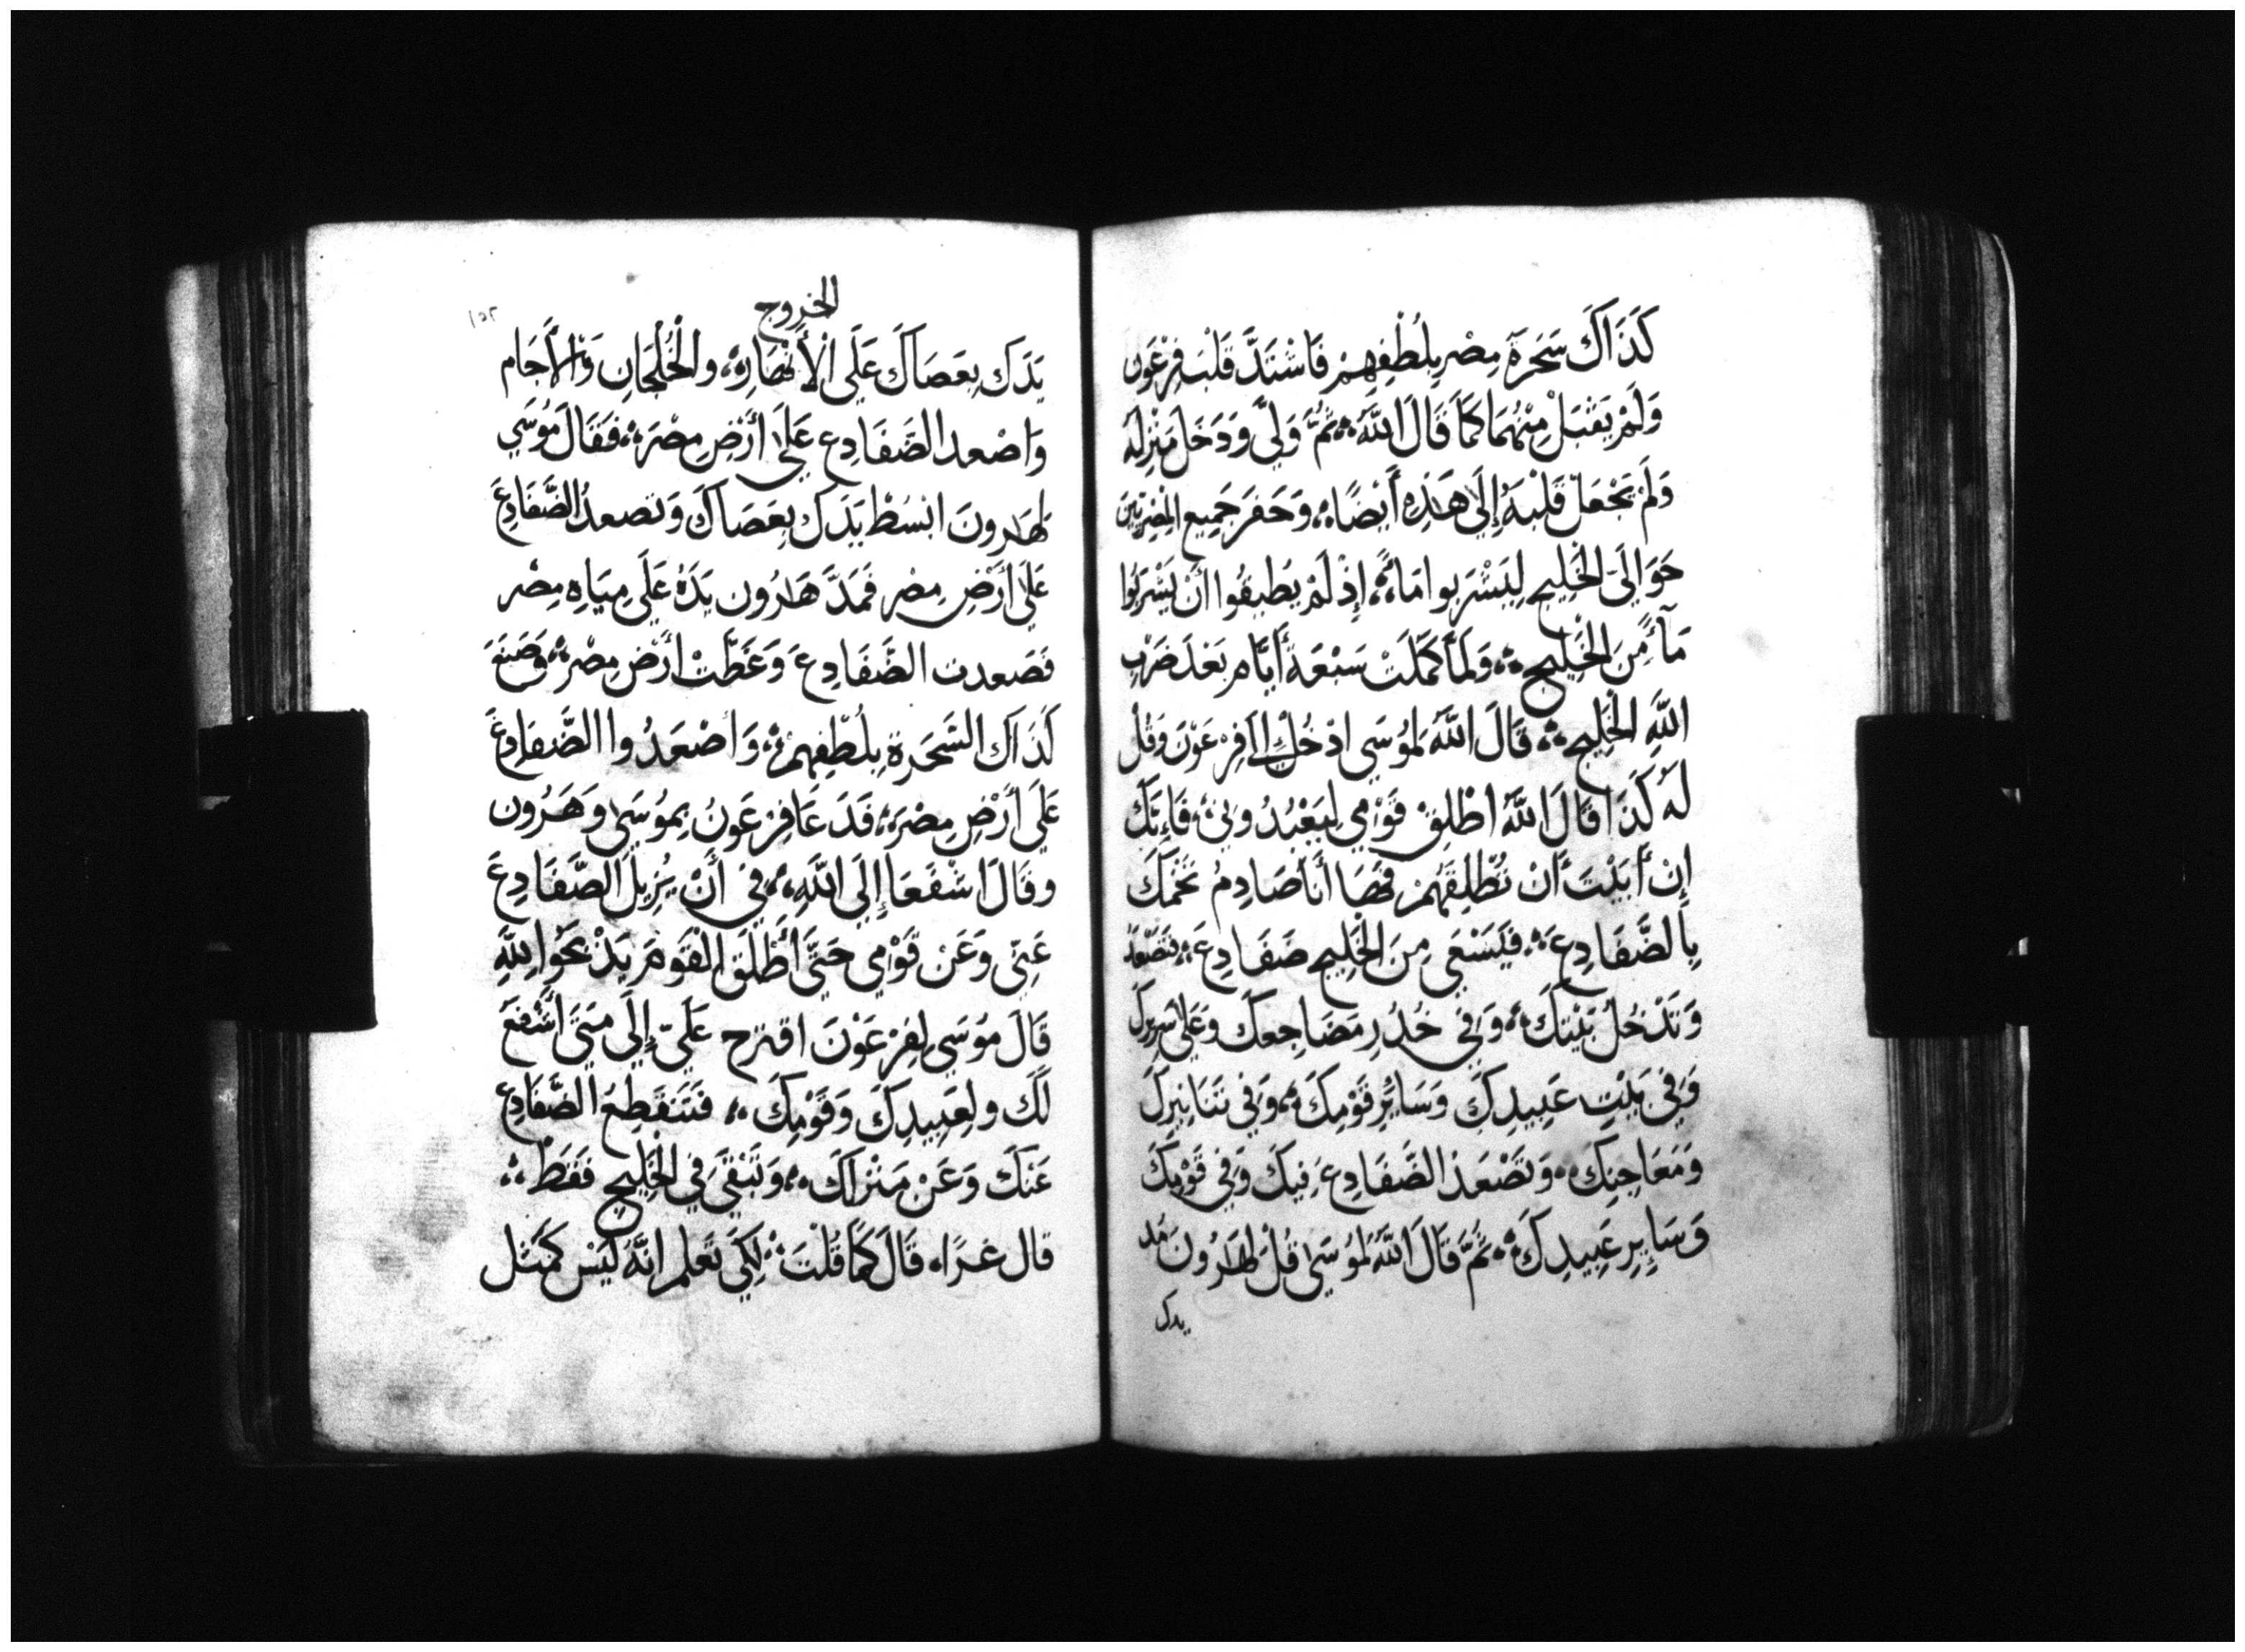 كَذَاكَ سَحَرَةَ مِصْرِ بِلُطْفِهِمْ فَاشْتَدَّ قَلْبَ فِرْعَوْن
وَلَمْ يَقْبَلْ مِنْهُمَا كَمَا قَالَ اللَّه ؞ ثُمَّ وَلَّي وَدَخَلَ مَنْزِلَه
وَلَمْ يَجْعَلْ قَلْبَهُ إِلَى هَذِهِ أَيْضًا ؞ وَحَفَرَ جَمِيع المِصْرِيّينَ
حَوَالِىَ الخَلِيج لِيَشْرَبوا مَاءً ؞ إِذْ لَمْ يطِيقُوا أَنْ يَشْرَبُوا
مَآءً مِنَ الخَلِيج ؞ وَلَمَّا كَمَلَتْ سَبْعَةَ أَيَّام بَعْدَ ضَرْبِ
اللَّهِ الخَلِيج ؞ قَالَ اللَّهُ لمُوسَي ادْخُلْ إِلَى فِرْعَوْنَ وَقُلْ
لَهُ كَذَا قَالَ اللَّهُ اطْلِقْ قَوْمِي لِيَعْبُدُونِي ؞ فَإِنَّكَ
إِنْ أَبَيْتَ أَنْ تُطْلِقَهُمْ فَهَا أَنَا صَادِمُ تَخْمَكَ
بِالضَّفَادِعَ ؞ فَيَسْعَى مِنَ الخَلِيج ضَفَادِعَ ؞ فَتَصْعَدُ
وَتَدْخُلْ بَيْتَكَ ؞ وَفِي خُدُرِ مَضَاجِعَكَ وَعَلَى سَرِيرِكَ
وَفِي بَيْتِ عَبِيدِكَ وَسَائِرِ قَوْمِكَ ؞ وَفِي تَنَانِيرِكَ
وَمَعَاجِنِكَ ؞ وَتَصْعَدُ الضَّفَادِعَ فِيكَ وَفِي قَوْمِكَ
وَسَايِرِ عَبِيدِكَ ؞ ثُمَّ قَالَ اللَّهُ لمُوسَى قُلْ لِهَارُونَ مُد
يدك
الخروج
يَدَكَ بِعَصَاكَ عَلَى الْأَنْهَارِ ؞ والْخُلْجَانِ وَالْأَجَام
وَاصْعد الضَّفَادِع عَلَى أَرْضِ مِصْرَ ؞ فَقَالَ مُوسَي
لِهَارونَ ابْسُطْ يَدَكَ بِعَصَاكَ وَتصعدُ الضَّفَادِعَ
عَلَى أَرْضِ مِصْر فَمَدَّ هَارُون يَدَهُ عَلَى مِيَاهِ مِصْر
فَصَعدت الضَّفَادِعَ وَغَطَّتْ أَرْضَ مِصْر ؞ وَصَنَعَ
كَذَاكَ السَّحَرة بِلُطْفِهِمْ ؞ وَأصْعَدُوا الضَّفَادِعَ
عَلَى أَرْضِ مِصْرَ ؞ فَدَعَا فِرْعَوْنُ بِمُوسَى وَهَرُون
وقَالَ اشْفَعَا إِلَى اللَّهِ ؞ فِي أَنْ يُزِيلَ الضَّفَادِعَ
عَنِّي وَعَنْ قَوْمِي حَتَّى أُطْلَقَ الْقَوْمَ يَذْبَحُوا لِلَّهِ
قَالَ مُوسَي لِفِرْعَوْنَ اقترح عَلَيّ إِلَى مَتَى أَشْفَعَ
لَكَ ولِعَبِيدِكَ وَقَوْمِكَ ؞ فَتَنْقَطِعُ الضَّفَادِعَ
عَنْكَ وَعَنْ مَنْزلَكَ ؞ وَتَبْقَى فِي الخَلِيج فَقَطْ ؞
قال غدًا ؞ قَالَ كَمَا قُلْتَ ؞ لِكَيْ تَعْلم انَّهُ لَيْسَ كَمَثَل